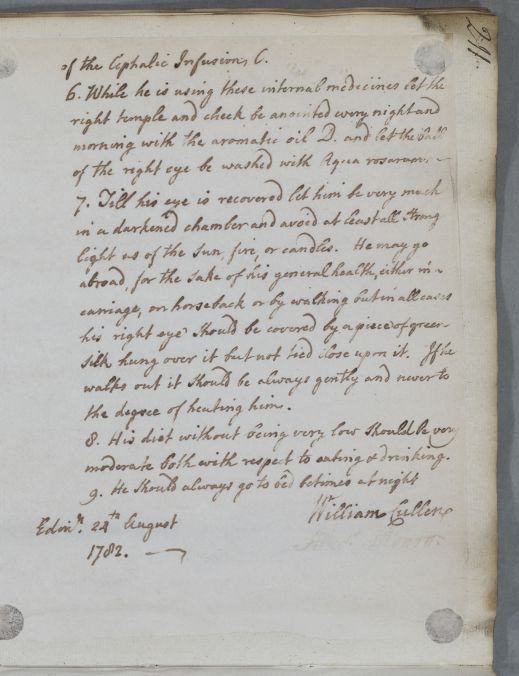 241.
of the Cephalic Infusion, C.
6. While he is using these internal medicines let the
right temple and cheek be anointed every night and
morning with the aromatic oil D. and let the ball
of the right eye be washed with Aqua rosarum. ~
7. Till his eye is recovered let him be very much
in a darkened chamber and avoid at least all strong
light as of the sun, fire, or candles. He may go
abroad, for the sake of his general health, either in ~
carriage, on horseback or by walking but in all cases
his right eye should be covered by a piece of green
silk hung over it but not tied close upon it. If he
walks out it should be always gently and never to
the degree of heating him.
8. His diet without being very low should be very
moderate both with respect to eating & drinking.
9. He should always go to bed betimes at night
William Cullen
Edinr. 24th August
Monro.
1782. —